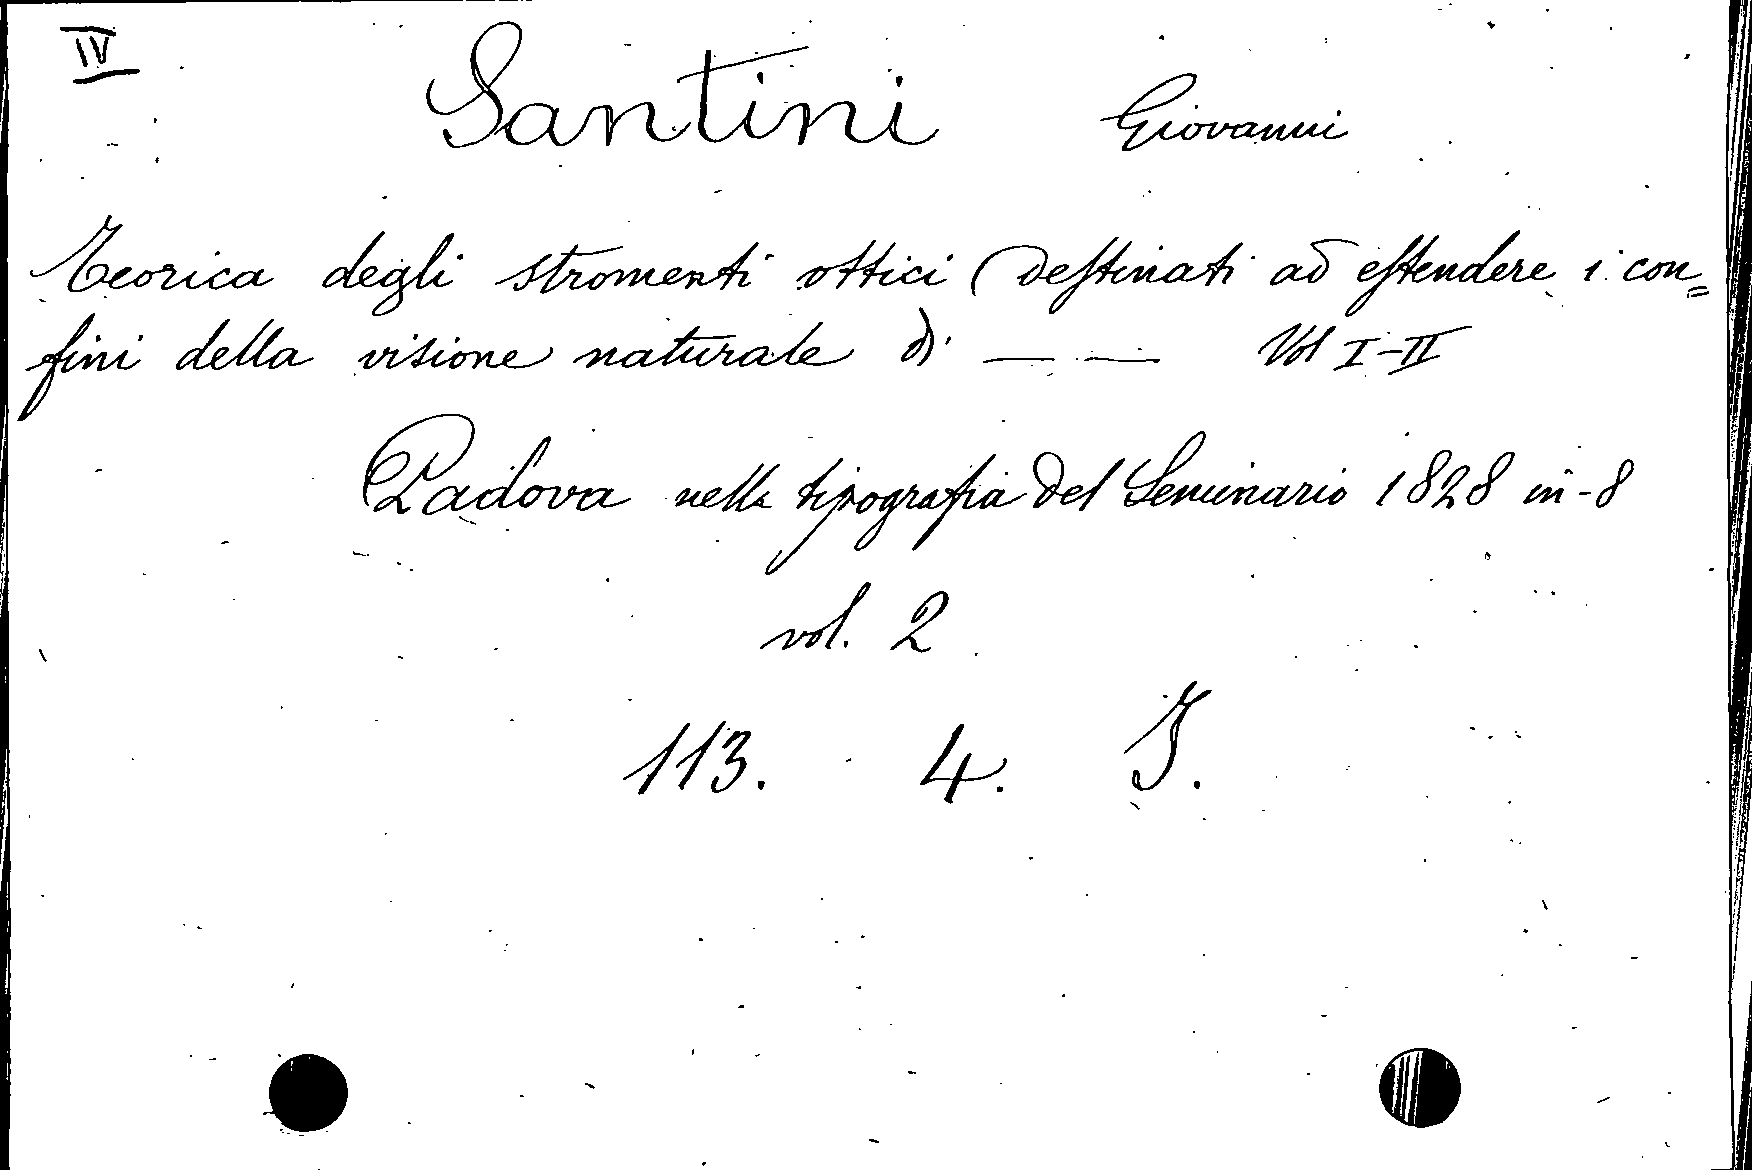 IV
Santini Giovanni
Teorica degli stromenti ottici (destinati ad estendere i con=
fini della visione naturale di — — Vol I-II
Padova nella tipografia del Seminario 1828 in-8
vol. 2
113. 4. J.